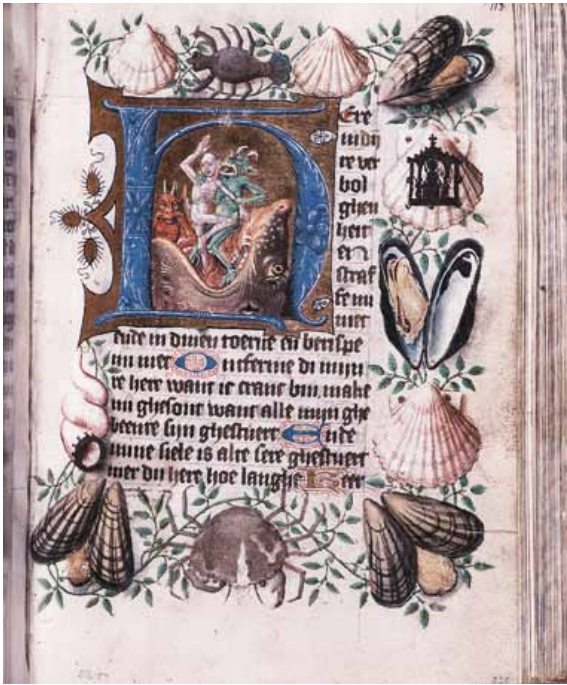 113
HEre
in dijn
re ver
bol
ghen
heit
en
straf
fe mi
niet
ende in dinen toerne en berispe
mi niet Ontferme di mijn
re here want ic cranc bin make
mi ghesont want alle mijn ghe
beente sijn ghestuert Ende
mine siele is alte sere ghestuert
mer du here hoe langhe Keer